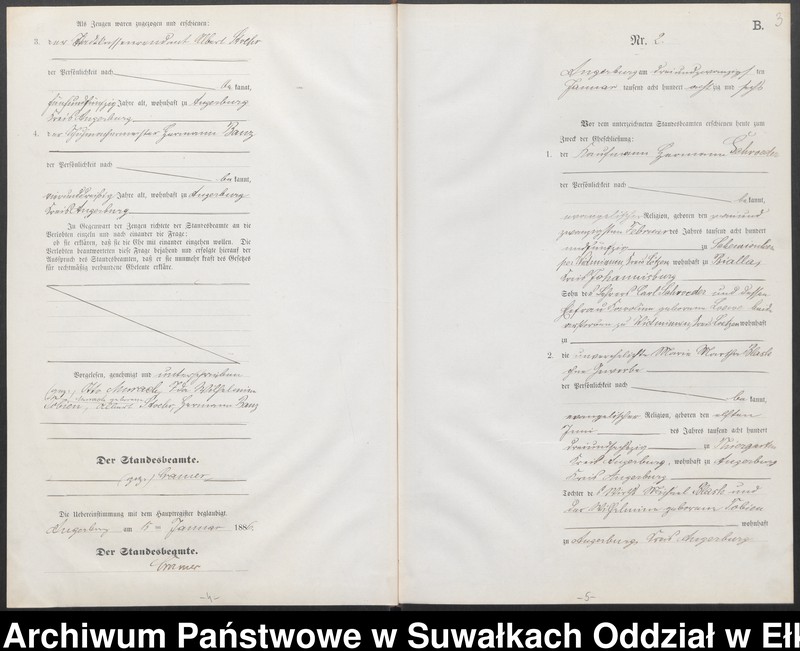 Als Zeugen waren zugezogen und erschienen:
3. der Albert Stoehr
der Persönlichkeit nach
be kannt,
fünfundfünfzig Jahre alt, wohnhaft zu Angerburg
Kreis Angerburg
4. der Schuhmachermeister Hermann Banz
der Persönlichkeit nach
be kannt,
vierunddreißig Jahre alt, wohnhaft zu Angerburg
Kreis Angerburg
In Gegenwart der Zeugen richtete der Standesbeamte an die
Verlobten einzeln und nach einander die Frage:
ob sie erklären, daß sie die Ehe mit einander eingehen wollen. Die
Verlobten beantworteten diese Frage bejahend und erfolgte hierauf der
Ausspruch des Standesbeamten, daß er sie nunmehr kraft des Gesetzes
für rechtmäßig verbundene Eheleute erkläre.
Vorgelesen, genehmigt und unterschrieben
(gez.) Otto Ida Wilhelmine
geborene
Tobien, Albert Stoehr, Hermann Banz
Der Standesbeamte.
(gez.) Cramer
Die Uebereinstimmung mit dem Hauptregister beglaubigt.
Angerburg am 5ten Januar 1886
Der Standesbeamte.
Cramer
-4-
B.
3
Nr. 2.
Angerburg am dreiundzwanzigsten
Januar tausend acht hundert achtzig und sechs
Vor dem unterzeichneten Standesbeamten erschienen heute zum
Zweck der Eheschließung:
1. der Kaufmann Hermann Schroeder
der Persönlichkeit nach
be kannt,
evangelischer Religion, geboren den neunund
zwanzigsten Februar des Jahres tausend acht hundert
undfünfzig zu
Widminnen, Kreis Lötzen wohnhaft zu Bialla,
Kreis Johannisburg
Sohn des Carl Schroeder und dessen
Ehefrau Karoline geborene beide
verstorben zu Widminnen, Kreis Loetzen wohnhaft
zu
2. die unverehelichte Maria Martha Blask
ohne Gewerbe
der Persönlichkeit nach
be kannt,
evangelischer Religion, geboren den elften
Juni des Jahres tausend acht hundert
dreiundsechszig zu Thiergarten
Kreis Angerburg, wohnhaft zu Angerburg
Kreis Angerburg
Tochter des Wirths Michael Blask und
der Wilhelmine geborene Tobien
wohnhaft
zu Angerburg, Kreis Angerburg
-5-
Archiwum Państwowe w Suwałkach Oddział w Ełk